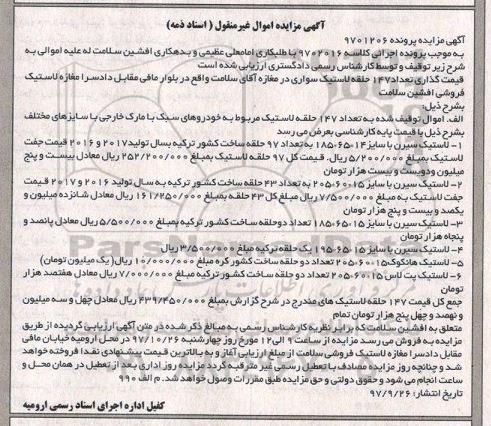 آگهی مزایده اموال غیرمنقول ( اسناد ذمه)
آگهی مزایده پرونده ۹۷۰۱۲۰۶
به موجب پرونده اجرائی کلاسه ۹۷۰۲۰۱۶ با طلبکاری امامعلی عظیمی و بدهکاری افشین سلامت له علیه اموالی به
شرح زیر توقیف و توسط کارشناس رسمی دادگستری ارزیابی شده است
قیمت گذاری تعداد۱۴۷ حلقه لاستیک سواری در مغازه آقای سلامت واقع در بلوار مافی مقابل دادسرا مغازه لاستیک
فروشی افشین سلامت
بشرح ذیل:
الف. اموال توقیف شده به تعداد ۱۴۷ حلقه لاستیک مربوط به خودروهای سبک با مارک خارجی با سایزهای مختلف
بشرح ذیل با قیمت پایه کارشناسی بعرض می رسد
۱- لاستیک سیرن با سایز ۱۴-۶۵-۱۸۵ به تعداد ۹۷ حلقه ساخت کشور ترکیه بسال تولید۲۰۱۷ و ۲۰۱۶ قیمت جفت
لاستیک بمبلغ ۵/۲۰۰/۰۰۰ ریال. قیمت کل ۹۷ حلقه لاستیک بمبلغ ۲۵۲/۲۰۰/۰۰۰ ریال معادل بیست و پنج
میلیون ودویست و بیست هزار تومان
۲- لاستیک سیرن با سایز ۱۵-۶۰-۲۰۵ به تعداد ۴۳ حلقه ساخت کشور ترکیه به سال تولید ۲۰۱۶ و ۲۰۱۷ قیمت
جفت لاستیک به مبلغ ۷/۵۰۰/۰۰۰ ریال مبلغ کل ۴۳ حلقه بمبلغ ۱۶۱/۲۵۰/۰۰۰ ریال معادل شانزده میلیون و
یکصد و بیست و پنج هزار تومان
۳- لاستیک سیرن با سایز ۱۵-۶۵-۱۸۵ تعداد دوحلقه ساخت کشور ترکیه بمبلغ ۵/۵۰۰/۰۰۰ ریال معادل پانصد و
پنجاه هزار تومان
۴- لاستیک سیرن با سایز ۱۵-۶۵-۱۹۵ یک حلقه ترکیه مبلغ ۳/۵۰۰/۰۰۰ ریال
۵- لاستیک هانکوک۱۵-۶۰-۲۰۵ تعداد دو حلقه ساخت کشور کره مبلغ ۱۰/۰۰۰/۰۰۰ ریال (یک میلیون تومان)
۶- لاستیک پت لاس ۱۵-۶۰-۲۰۵ تعداد دو حلقه ساخت کشور ترکیه مبلغ ۷/۰۰۰/۰۰۰ ریال معادل هفتصد هزار
تومان
جمع کل قیمت ۱۴۷ حلقه لاستیک های مندرج در شرح گزارش بمبلغ ۴۳۹/۴۵۰/۰۰۰ ریال معادل چهل و سه میلیون
و نهصد و چهل پنج هزار تومان تمام
متعلق به افشین سلامت که برابر نظریه کارشناس رسمی به مبالغ ذکر شده در متن آگهی ارزیابی گردیده از طریق
مزایده به فروش می رسد مزایده از ساعت ۹ الی ۱۲ مورخ روز چهارشنبه ۹۷/۱۰/۲۶ در محل ارومیه خیابان مافی
مقابل دادسرا مغازه لاستیک فروشی سلامت از مبلغ ارزیابی آغاز و به بالاترین قیمت پیشنهادی نقدا فروخته خواهد
شد و چنانچه روز مزایده مصادف با تعطیل رسمی غیر مترقبه گردد مزایده روز اداری بعد از تعطیل در همان محل و
ساعت انجام می شود و حقوق دولتی و حق مزایده طبق مقررات وصول خواهد شد. م الف ۹۹۰
تاریخ انتشار: ۹۷/۹/۲۶
کفیل اداره اجرای اسناد رسمی ارومیه